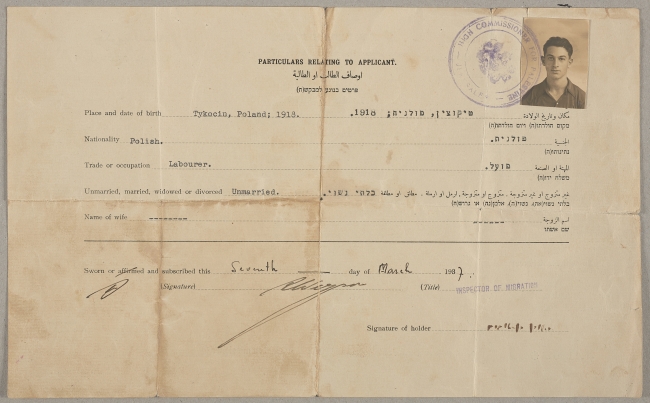 HIGH COMMISSIONER
PALESTINE
PARTICULARS RELATING TO APPLICANT.
اوصاف الطالب او الطالبة
פרטים בנוגע למבקש(ת)
Place and date of birth Tykocin, Poland; 1918. טיקוצין, פולניה; 1918. مكان وتاريخ الولادة
מקום הולדתו(ה) ויום הולדתו(ה)
Nationality Polish. פולנית. الجنسية
נתינותו(ה)
Trade or occupation Labourer. פועל. المهنة او الصنعة
משלח ידו(ה)
Unmarried, married, widowed or divorced Unmarried. בלתי נשוי. غير متزوج او غير متزوجة ، متزوج او متزوجة ، ارمل او ارملة ، مطلق او مطلقة
בלתי נשוי(אה), נשוי(אה), אלמן(נה) או גרוש(ה)
Name of wife -------- ------ اسم الزوجة
שם אשתו
Sworn or affirmed and subscribed this Seventh day of March 1937.
(Signature) (Title) INSPECTOR OF MIGRATION
Signature of holder